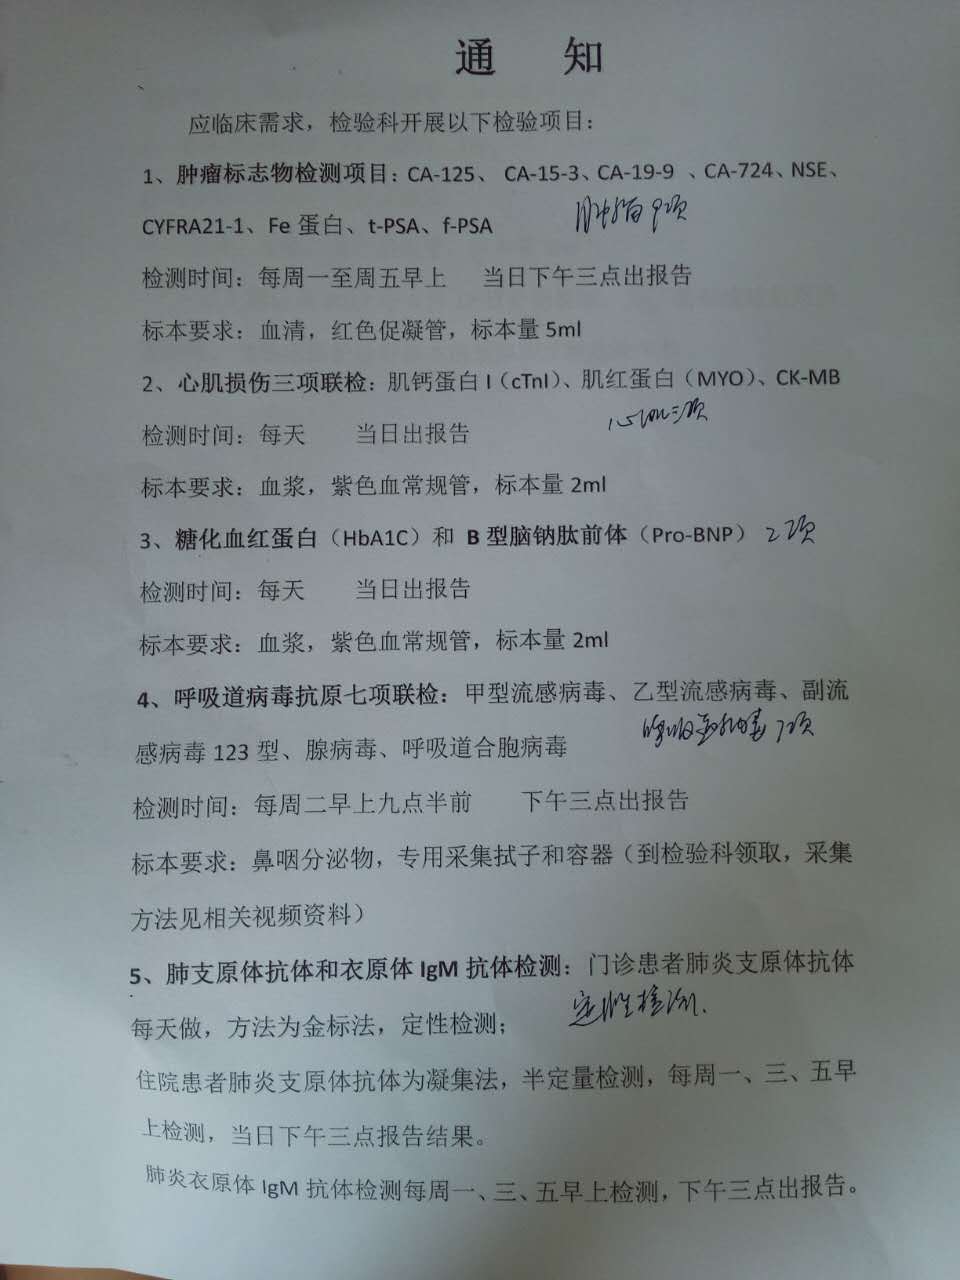 通 知
应临床需求，检验科开展以下检验项目：
1、肿瘤标志物检测项目：CA-125、 CA-15-3、CA-19-9 、CA-724、NSE、
CYFRA21-1、Fe 蛋白、t-PSA、f-PSA
肿瘤9项
检测时间：每周一至周五早上 当日下午三点出报告
标本要求：血清，红色促凝管，标本量 5ml
2、心肌损伤三项联检：肌钙蛋白 I（cTnI）、肌红蛋白（MYO）、CK-MB
心肌三项
检测时间：每天 当日出报告
标本要求：血浆，紫色血常规管，标本量 2ml
3、糖化血红蛋白（HbA1C）和 B 型脑钠肽前体（Pro-BNP） 2项
检测时间：每天 当日出报告
标本要求：血浆，紫色血常规管，标本量 2ml
4、呼吸道病毒抗原七项联检：甲型流感病毒、乙型流感病毒、副流
感病毒 123 型、腺病毒、呼吸道合胞病毒
呼吸道病毒7项
检测时间：每周二早上九点半前 下午三点出报告
标本要求：鼻咽分泌物，专用采集拭子和容器（到检验科领取，采集
方法见相关视频资料）
5、肺支原体抗体和衣原体 IgM 抗体检测：门诊患者肺炎支原体抗体
每天做，方法为金标法，定性检测；
定性检测.
住院患者肺炎支原体抗体为凝集法，半定量检测，每周一、三、五早
上检测，当日下午三点报告结果。
肺炎衣原体 IgM 抗体检测每周一、三、五早上检测，下午三点出报告。